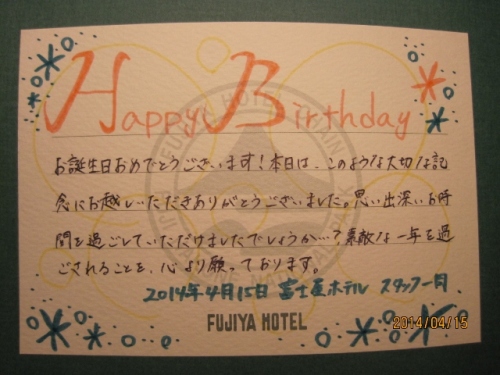 Happy Birthday
お誕生日おめでとうございます！本日は、このような大切な記
念にお越しいただきありがとうございました。思い出深いお時
間を過ごしていただけましたでしょうか…？素敵な一年を過
ごされることを、心より願っております。
2014年4月15日 富士屋ホテル スタッフ一同
FUJIYA HOTEL
2014/04/15